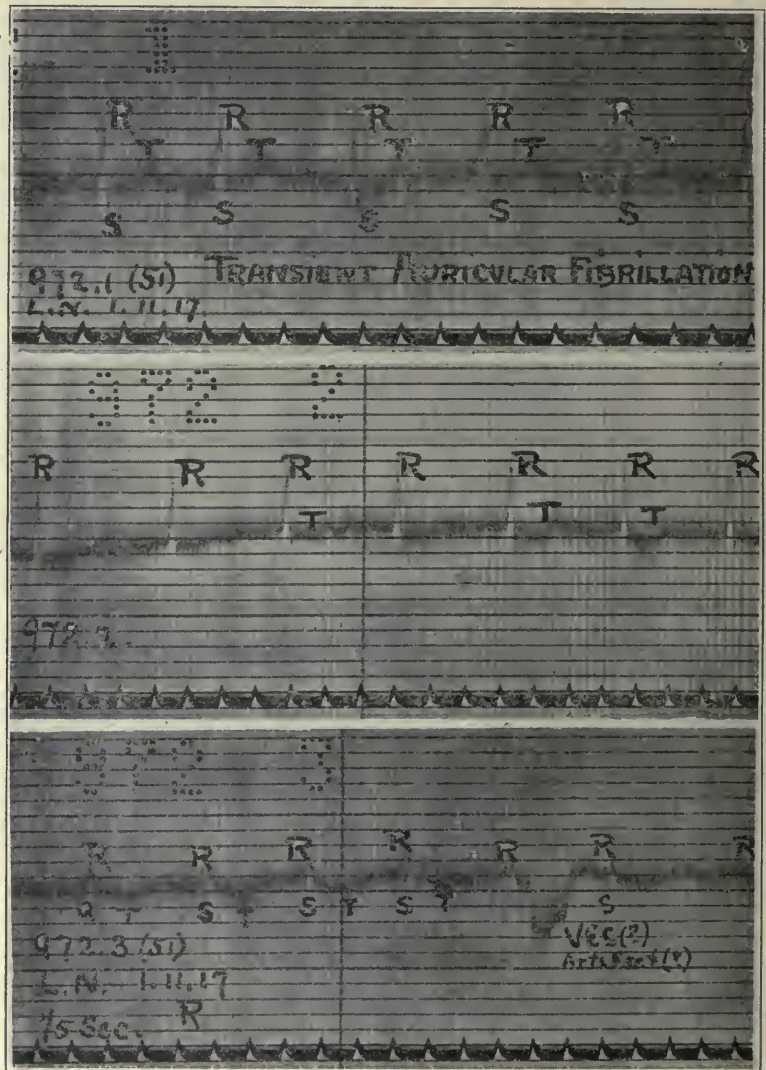 1
R R R R R
T T T T T
S S S S S
972.1 (51) TRANSIENT AURICULAR FIBRILLATION
L.N. 1.11.17.
972 2
R R R R R R R
T T T
972.2.
972 3
R R R R R R R
Q T S T S T S T S
972.3 (51) VEC(?)
L.N. 1.11.17 Artefact(?)
R